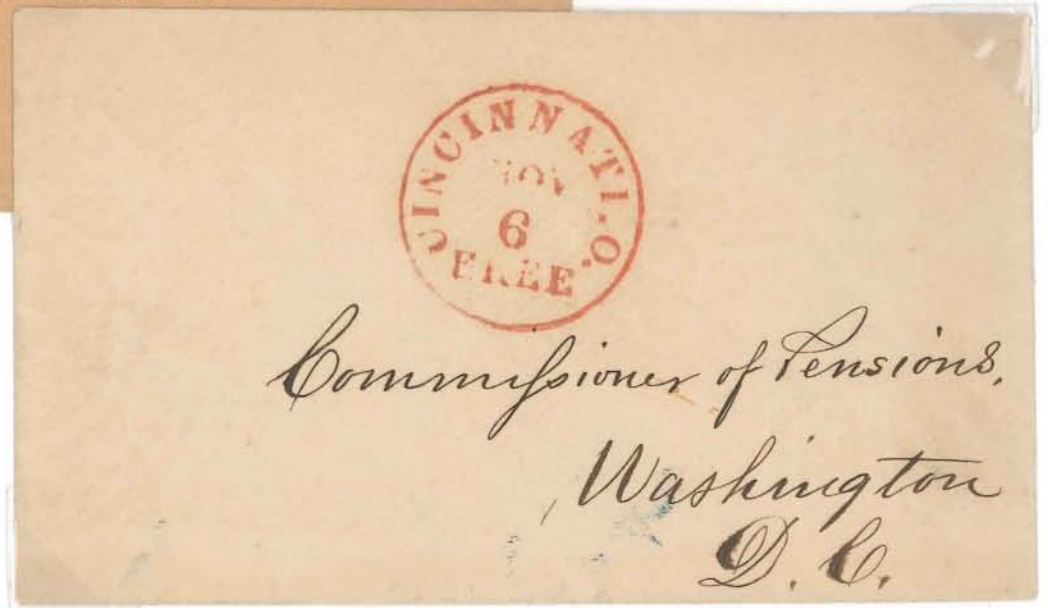 CINCINNATI-O.
NOV
6
FREE
Commiſsioner of Pensions,
Washington
D. C.